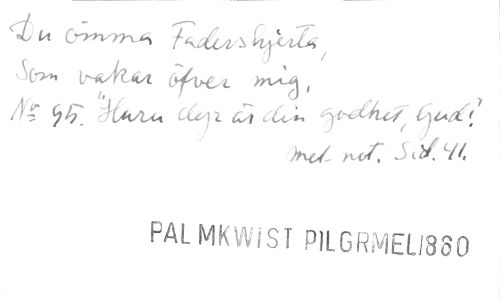 Du ömma Fadershjerta,
Som vakar öfver mig,
No 95. "Huru dyr är din godhet, Gud".
mel. not. Sid. 41.
PALMKWIST PILGRMEL1860